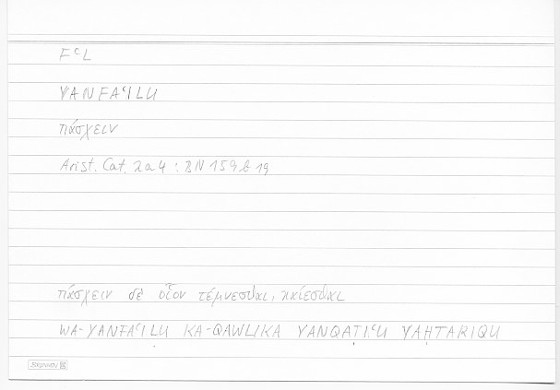 FᶜL
YANFAᶜILU
πάσχειν
Arist. Cat. 2a4 : BN 159b 19
πάσχειν δὲ οἷον τέμνεσθαι, καίεσθαι
WA-YANFAᶜILU KA-QAWLIKA YANQAṬIᶜU YAḤTARIQU